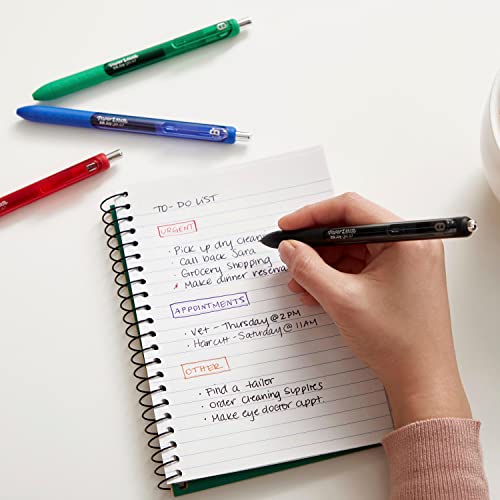 TO-DO LIST
URGENT
• Pick up dry clean
• Call back Sara
• Grocery shopping
• Make dinner reserva
APPOINTMENTS
• Vet - Thursday @ 2PM
• Haircut - Saturday @ 11AM
OTHER
• Find a tailor
• Order cleaning supplies
• Make eye doctor appt.